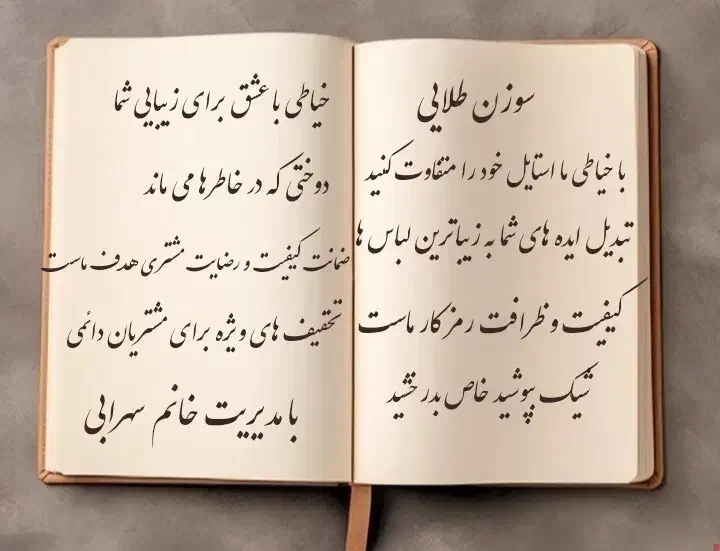 سوزن طلایی
با خیاطی ما استایل خود را متفاوت کنید
تبدیل ایده های شما به زیباترین لباس ها
کیفیت و ظرافت رمز کار ماست
شیک بپوشید خاص بدرخشید
خیاطی با عشق برای زیبایی شما
دوختی که در خاطرها می ماند
ضمانت کیفیت و رضایت مشتری هدف ماست
تخفیف های ویژه برای مشتریان دائمی
با مدیریت خانم سهرابی